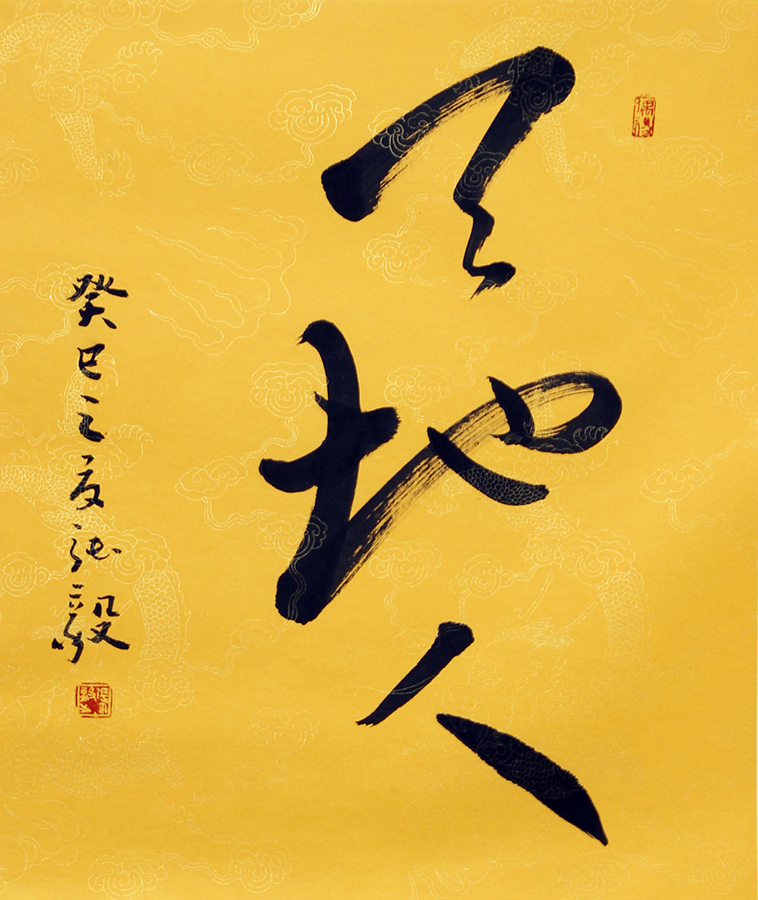 天地人
癸巳之夏張毅